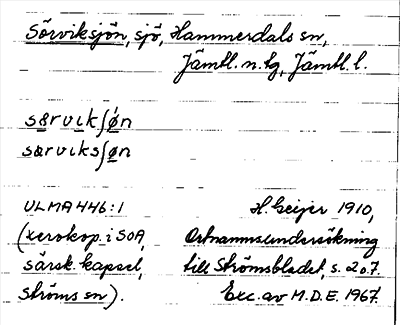 Sörviksjön, sjö, Hammerdals sn,
Jämtl. n. tg, Jämtl. l.
sørvikʃøn
særviksʃøn
ULMA 446:1
(xerokop. i SOA,
särsk. kapsel,
Ströms sn).
H. Geijer 1910,
Ortnamnsundersökning
till Strömsbladet, s. 207.
Exc. av M.D.E. 1967.